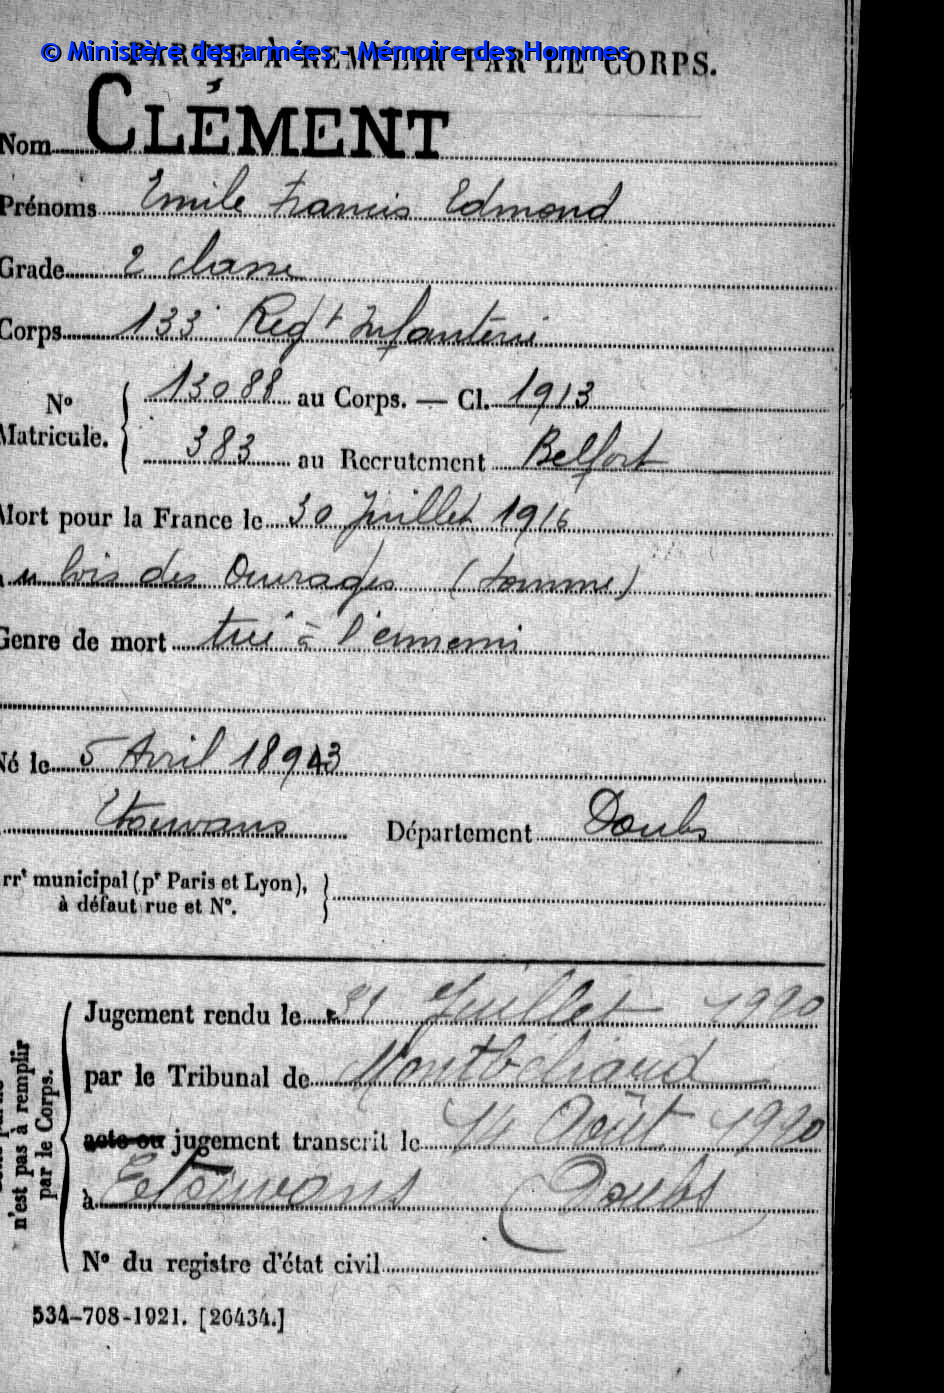 © Ministère des armées - Mémoire des Hommes
PARTIE À REMPLIR PAR LE CORPS.
Nom CLÉMENT
Prénoms Emile Francis Edmond
Grade 2 classe
Corps 133 Regt Infanterie
No Matricule. 13088 au Corps. — Cl. 1913
383 au Recrutement Belfort
Mort pour la France le 30 Juillet 1916
au bois des Ouvrages (Somme)
Genre de mort tué à l'ennemi
Né le 5 Avril 1893
Etouvans Département Doubs
rrt municipal (pr Paris et Lyon),
à défaut rue et No.
n'est pas à remplir
par le Corps.
Jugement rendu le 31 Juillet 1920
par le Tribunal de Montbéliard
acte ou jugement transcrit le 14 Août 1920
à Etouvans (Doubs
No du registre d'état civil
534-708-1921. [26434.]